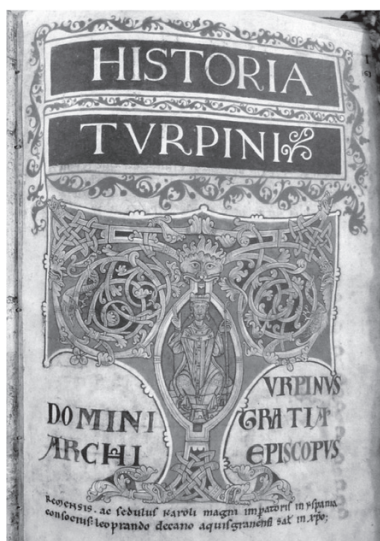 HISTORIA
TVRPINI
VRPINVS
DOMINI GRATIA
ARCHI EPISCOPVS
Remensis. ac sedulus Karoli magni imperatoris in yspania
consocius. leoprando decano aquisgranensi salt in xpo;